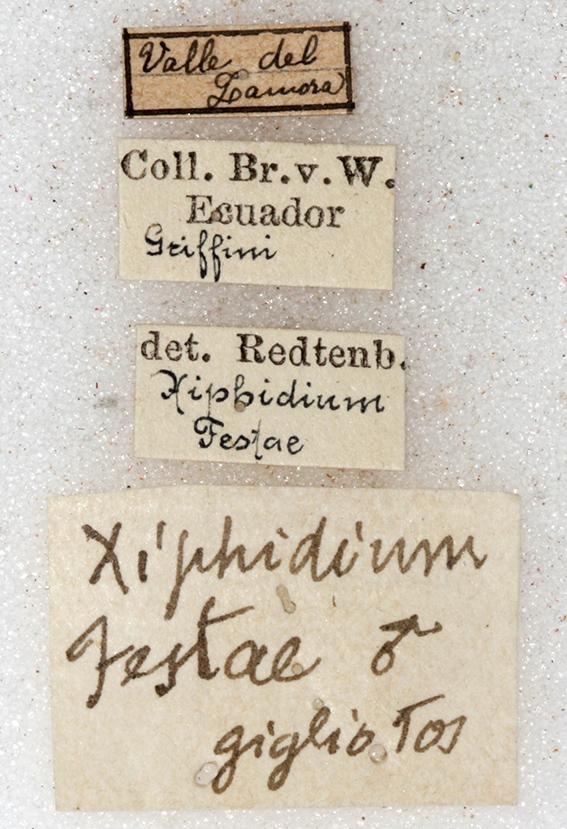 Valle del
Zamora
Coll. Br. v. W.
Ecuador
Griffini
det. Redtenb.
Xiphidium
Festae
Xiphidium
festae ♂
giglio Tos